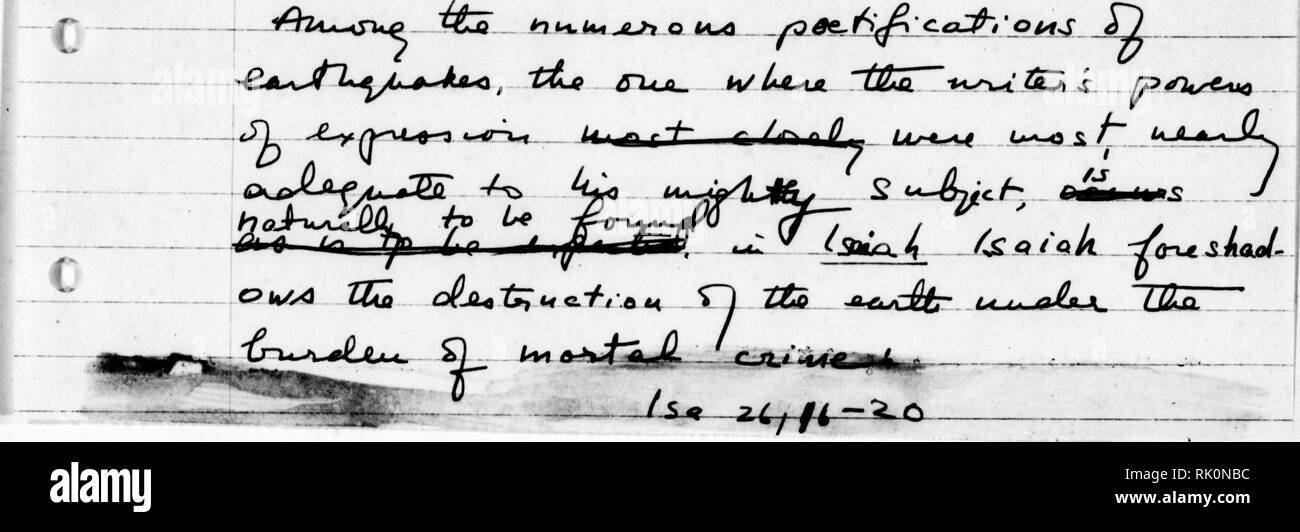 Among the numerous poetifications of
earthquakes, the one where the writer's powers
of expression most closely were most nearly
adequate to his mighty subject, is
naturally to be found
as is to be expected, in Isaiah Isaiah foreshad-
ows the destruction of the earth under the
burden of mortal crime.
Isa 26, 16-20
alamy
alamy
alamy
Image ID: RK0NBC
www.alamy.com